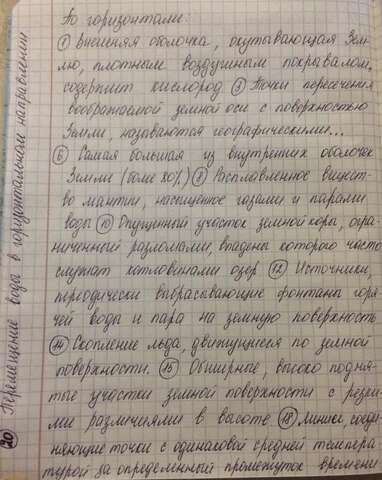 По горизонтали:
① Внешняя оболочка, окутывающая Зем-
лю, плотным воздушным покрывалом,
содержит кислород ③ Точки пересечения
воображаемой земной оси с поверхностью
Земли, называются географическими...
⑥ Самая большая из внутренних оболочек
Земли (более 80%) ⑧ Расплавленное вещест-
во мантии, насыщенное газами и парами
воды ⑩ Опущенный участок земной коры, огра-
ниченный разломами, впадины которого часто
служат котловинами озер ⑫ Источники,
периодически выбрасывающие фонтаны горя-
чей воды и пара на земную поверхность
⑭ Скопление льда, движущиеся по земной
поверхности. ⑮ Обширные, высоко подня-
тые участки земной поверхности с резки-
ми различиями в высоте ⑱ Линии, соеди-
няющие точки с одинаковой средней темпера
турой за определенный промежуток времени
⑳ Перемещение воды в горизонтальном направлении